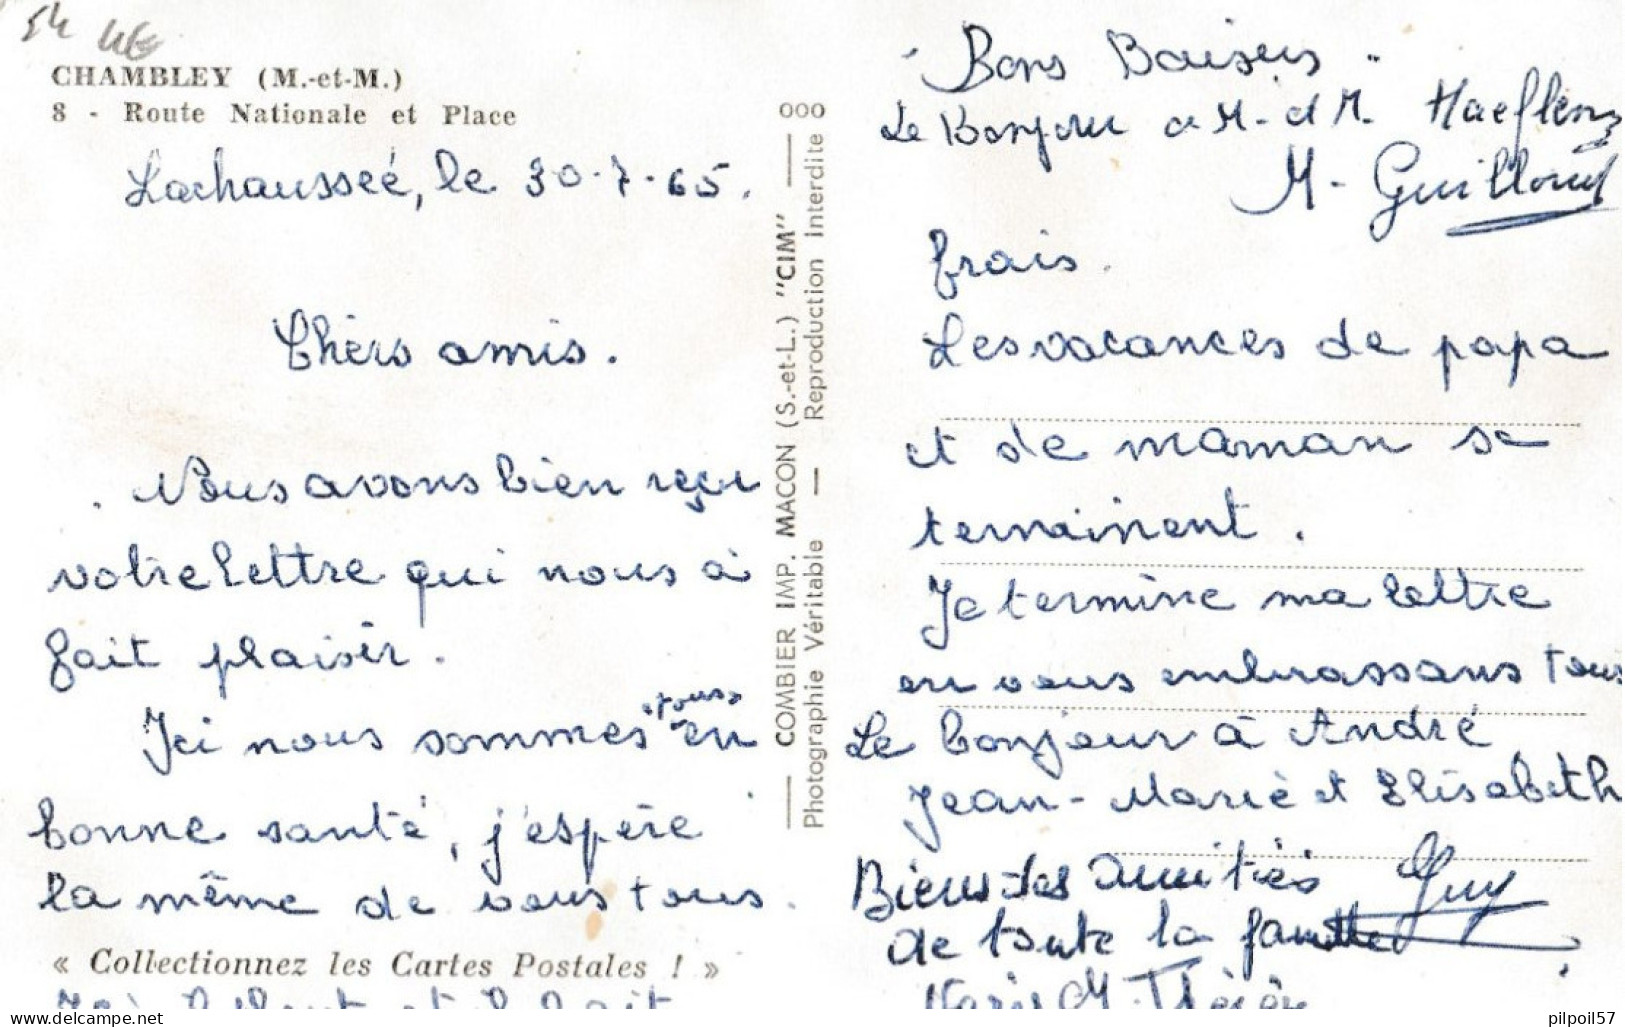 54
CHAMBLEY (M.-et-M.)
8 - Route Nationale et Place
Lachausseé, le 30.7.65.
Chers amis.
Nous avons bien reçu
votre lettre qui nous à
fait plaisir.
Ici nous sommes "tous" en
bonne santé, j'espère
la même de vous tous.
« Collectionnez les Cartes Postales ! »
Ici il pleut et il fait
COMBIER IMP. MACON (S.-et-L.) "CIM"
Photographie Véritable — Reproduction Interdite
000
Bons Baisers
Le Bonjour a M. et M.
M. Guilloud
frais.
Les vacances de papa
et de maman se
terminent.
Je termine ma lettre
en vous embrassans tous
Le bonjour à André
Jean-Marie et Elisabeth
Biens des amitiés Guy
de toute la famille
M. Thérèse
pilpoil57
www.delcampe.net